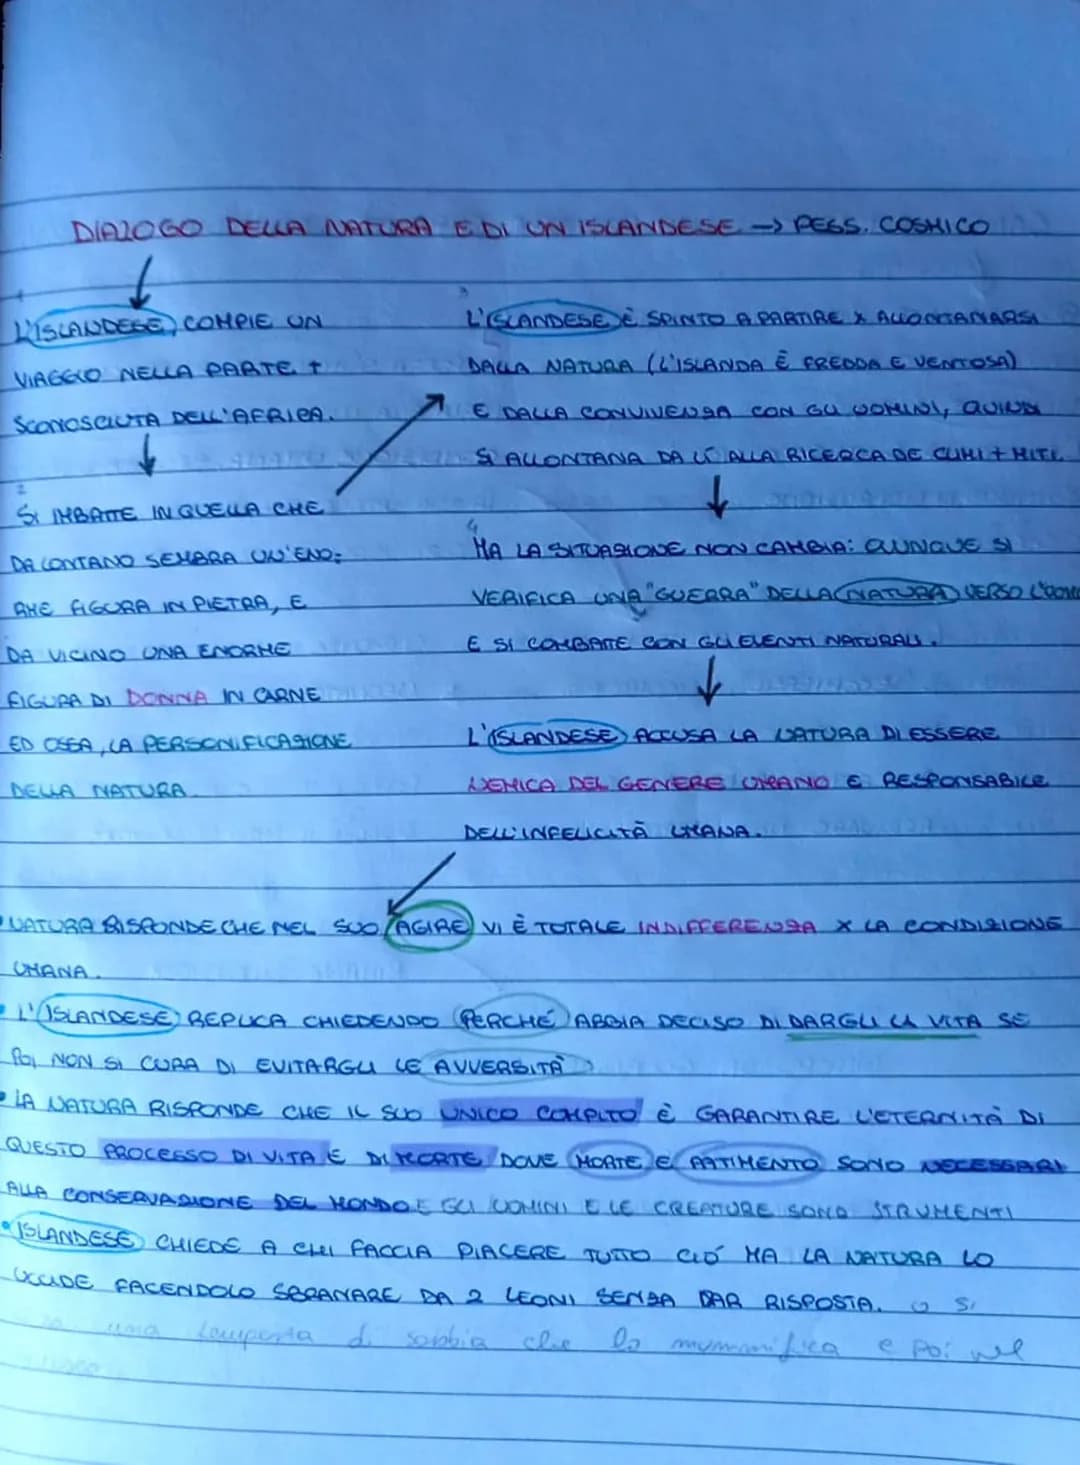 DIALOGO DELLA NATURA E DI UN ISLANDESE → PESS. COSMICO
L'ISLANDESE, COMPIE UN
VIAGGIO NELLA PARTE +
SCONOSCIUTA DELL'AFRICA.
2
SI IMBATTE IN QUELLA CHE
DA LONTANO SEMBRA UN'ENO:
RME FIGURA IN PIETRA, E
DA VICINO UNA ENORME
FIGURA DI DONNA IN CARNE
ED OSSA, LA PERSONIFICAZIONE
DELLA NATURA.
3
L'ISLANDESE È SPINTO A PARTIRE X ALLONTANARSI
DALLA NATURA (L'ISLANDA È FREDDA E VENTOSA)
E DALLA CONVIVENZA CON GLI UOMINI, QUINDI
SI ALLONTANA DA LÌ ALLA RICERCA DE CLIMI + MITI.
4
MA LA SITUAZIONE NON CAMBIA: OUNQUE SI
VERIFICA UNA "GUERRA" DELLA NATURA VERSO L'UOMO
E SI COMBATTE CON GLI ELENTI NATURALI.
L'ISLANDESE ACCUSA LA NATURA DI ESSERE
NEMICA DEL GENERE UMANO E RESPONSABILE
DELL'INFELICITÀ UMANA.
• NATURA RISPONDE CHE NEL SUO AGIRE VI È TOTALE INDIFFERENZA X LA CONDIZIONE
UMANA.
• L'ISLANDESE REPLICA CHIEDENDO PERCHÉ ABBIA DECISO DI DARGLI LA VITA SE
POI NON SI CURA DI EVITARGLI LE AVVERSITÀ
• LA NATURA RISPONDE CHE IL SUO UNICO COMPITO È GARANTIRE L'ETERNITÀ DI
QUESTO PROCESSO DI VITA E DI MORTE DOVE MORTE E PATIMENTO SONO NECESSARI
ALLA CONSERVAZIONE DEL MONDO E GLI UOMINI E LE CREATURE SONO STRUMENTI
• ISLANDESE CHIEDE A CHI FACCIA PIACERE TUTTO CIÓ MA LA NATURA LO
UCCIDE FACENDOLO SBRANARE DA 2 LEONI SENZA DAR RISPOSTA. O SI
una tempesta di sabbia che lo mummifica e poi nel